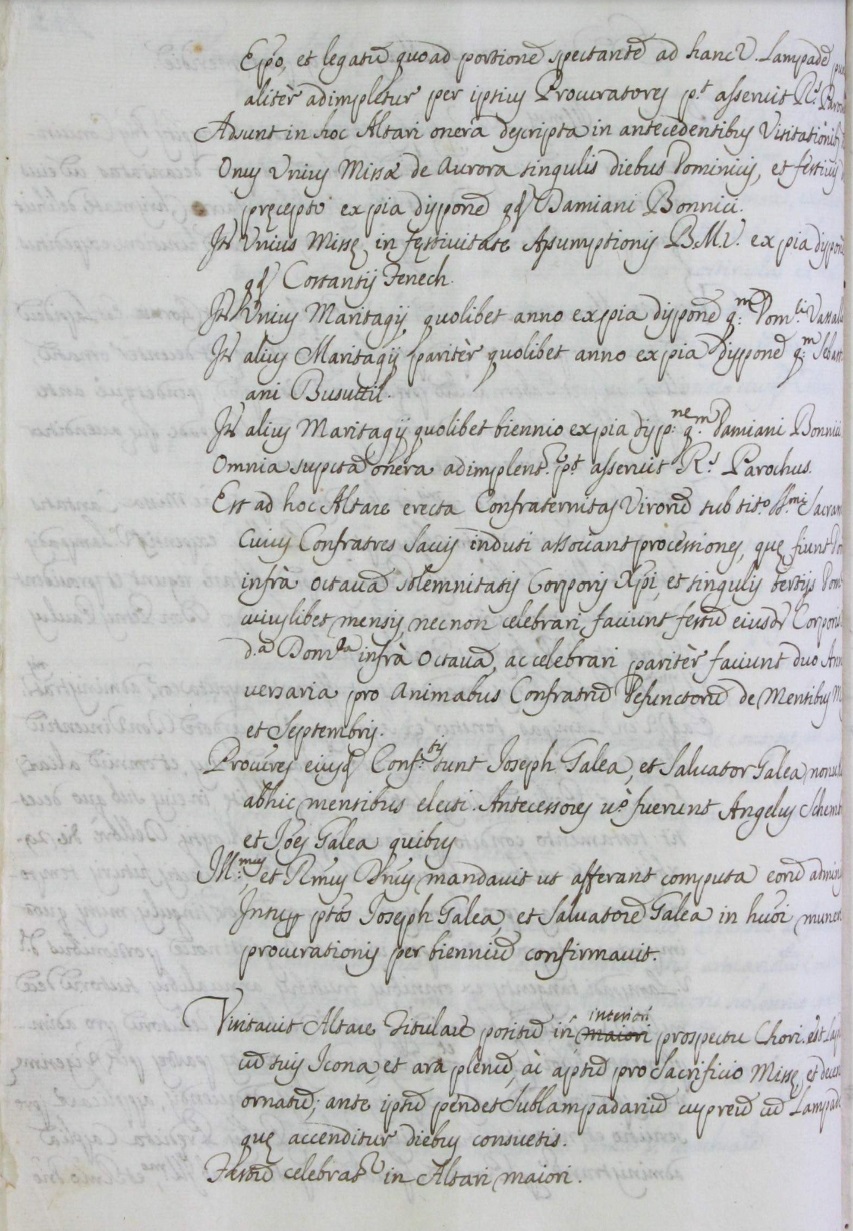 Epõ, et legatũ quoad portionẽ spectantẽ ad hanc V. Lampadẽ
alitèr adimpletur per ipsius Procuratores p.t asseruit R.s Paro
Adsunt in hoc Altari onera descripta in antecedentibus Visitationib
Onus Unius Missæ de Aurora singulis diebus Dominicis, et festivis
precepto ex pia disponẽ qd. Damiani Bonnici.
It. Unius Misse in festivitate Assumptionis B.M.V. ex pia dispon
qd. Costantij Fenech.
It. Unius Maritagij quolibet anno ex pia disponẽ q.m Dom.ci Vassall
It. alius Maritagij paritèr quolibet anno ex pia disponẽ q.m Sebast
ani Busuttil.
It. alius Maritagij quolibet biennio ex pia disp.ne q.m Damiani Bonnici
Omnia supcta onera adimplent. p.t asseruit R.s Parochus.
Est ad hoc Altare erecta Confraternitas Virorũ sub tit.o SS.mi Sacram
cuius Confratres saccis induti associant processiones, que fiunt Do
infrà octavã solemnitatis Corporis Xpi, et singulis tertijs Dom
cuiuslibet mensis, necnon celebrari faciunt festũ eiusd. Corporis
d.a Dom.ca infrà Octavã, ac celebrari paritèr faciunt duo Anni
versaria pro Animabus Confratrũ Defunctorũ de Mentibus M
et Septembris.
Procures eiusd. Conf.tis sunt Joseph Galea, et Salvator Galea nonul
abhic mensibus electi. Antecessores v.o fuerunt Angelus Schem
et Joes Galea quibus
Ill.mus et Rmus Dnus mandavit ut afferant computa eorũ admini
Intus ptos Joseph Galea, et Salvatorẽ Galea in huõi munere
procurationis per bienniũ confirmavit.
Visitavit Altare Titulare positũ in interiori prospectu Chori. est
cũ suis Icona, et ara plenũ, ac aptũ pro Sacrificio Misse, et decen
ornatũ; ante ipsũ pendet Sublampadariũ cupreũ cũ Lampade
que accenditur diebus consuetis.
Festũ celebrat.r in Altari maiori.